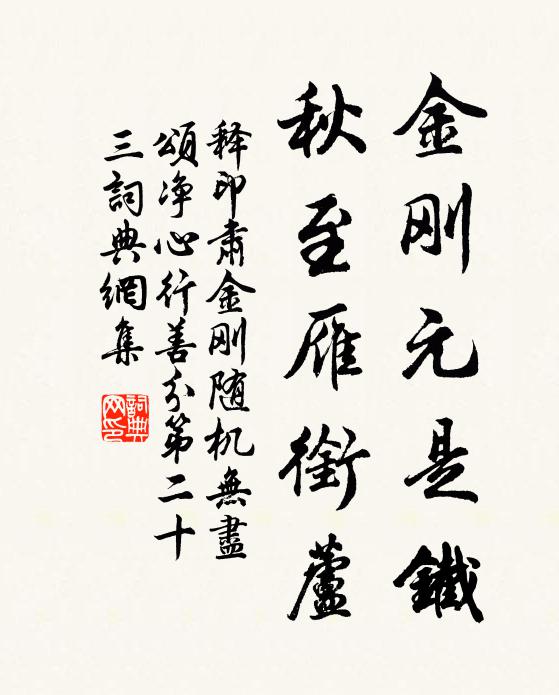 金刚元是鐵
秋至雁銜蘆
释印肃金刚随机無盡
頌净心行善分第二十
三詞典網集
詞典网印